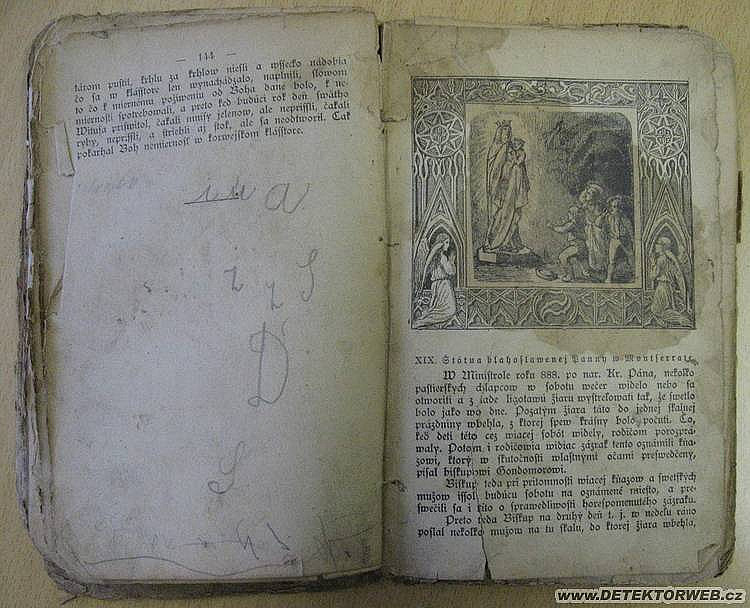 — 144 —
tárom pustil, krhlu za krhlow niesli a wssecko nádobia
čo sa w klásstore len wynachádzalo, naplnili, slowom
to čo k miernému požiweniu od Boha dané bolo, k ne-
miernosti spotrebowali, a preto keď budúci rok deň swätho
Wituſa príſwitol, čakali mnísy jelenow, ale neprissli, čakali
ryby, neprissli, a striehli aj stok, ale sa neodtworil. Tak
pokarhal Boh nemiernosť w korwejskom klásstore.
XIX. Státua blahoslawenej Panny w Montserrate.
W Ministrole roku 888. po nar. Kr. Pána, nekolko
pastierských chlapcow w sobotu wečer widelo nebo sa
otworiti a z ľade ligotawú žiaru wystrelowati tak, že swetlo
bolo jako wo dne. Pozatým žiara táto do jednej skalnej
prázdniny wbehla, z ktorej spew krásny bolo počuti. Čo,
keď deti této cez wiacej sobôt widely, rodičom porozprá-
waly. Potom i rodičowia widiac zázrak tento oznámili kňa-
zowi, ktorý w skutočnosti wlastnými očami preswedčený,
písal biskupowi Gondomorowi.
Biskup teda pri prítomnosti wiacej kňazow a swetských
mužow issol budúcu sobotu na oznámené miesto, a pre-
swečili sa i títo o sprawedliwosti horespomenutého zázraku.
Preto teda Biskup na druhý deň t. j. w nedelu ráno
poslal nekolko mužow na tu skalu, do ktorej žiara wbehla,
www.DETEKTORWEB.cz